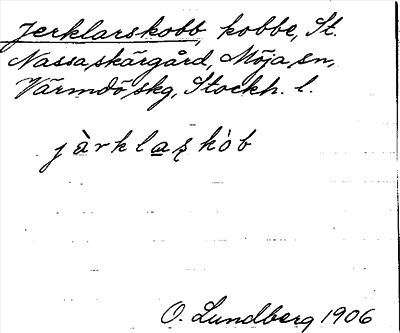 Jerklarskobb, kobbe, St.
Nassa skärgård, Möja sn,
Värmdö skg, Stockh. l.
jàrklaʂkòb
O. Lundberg 1906